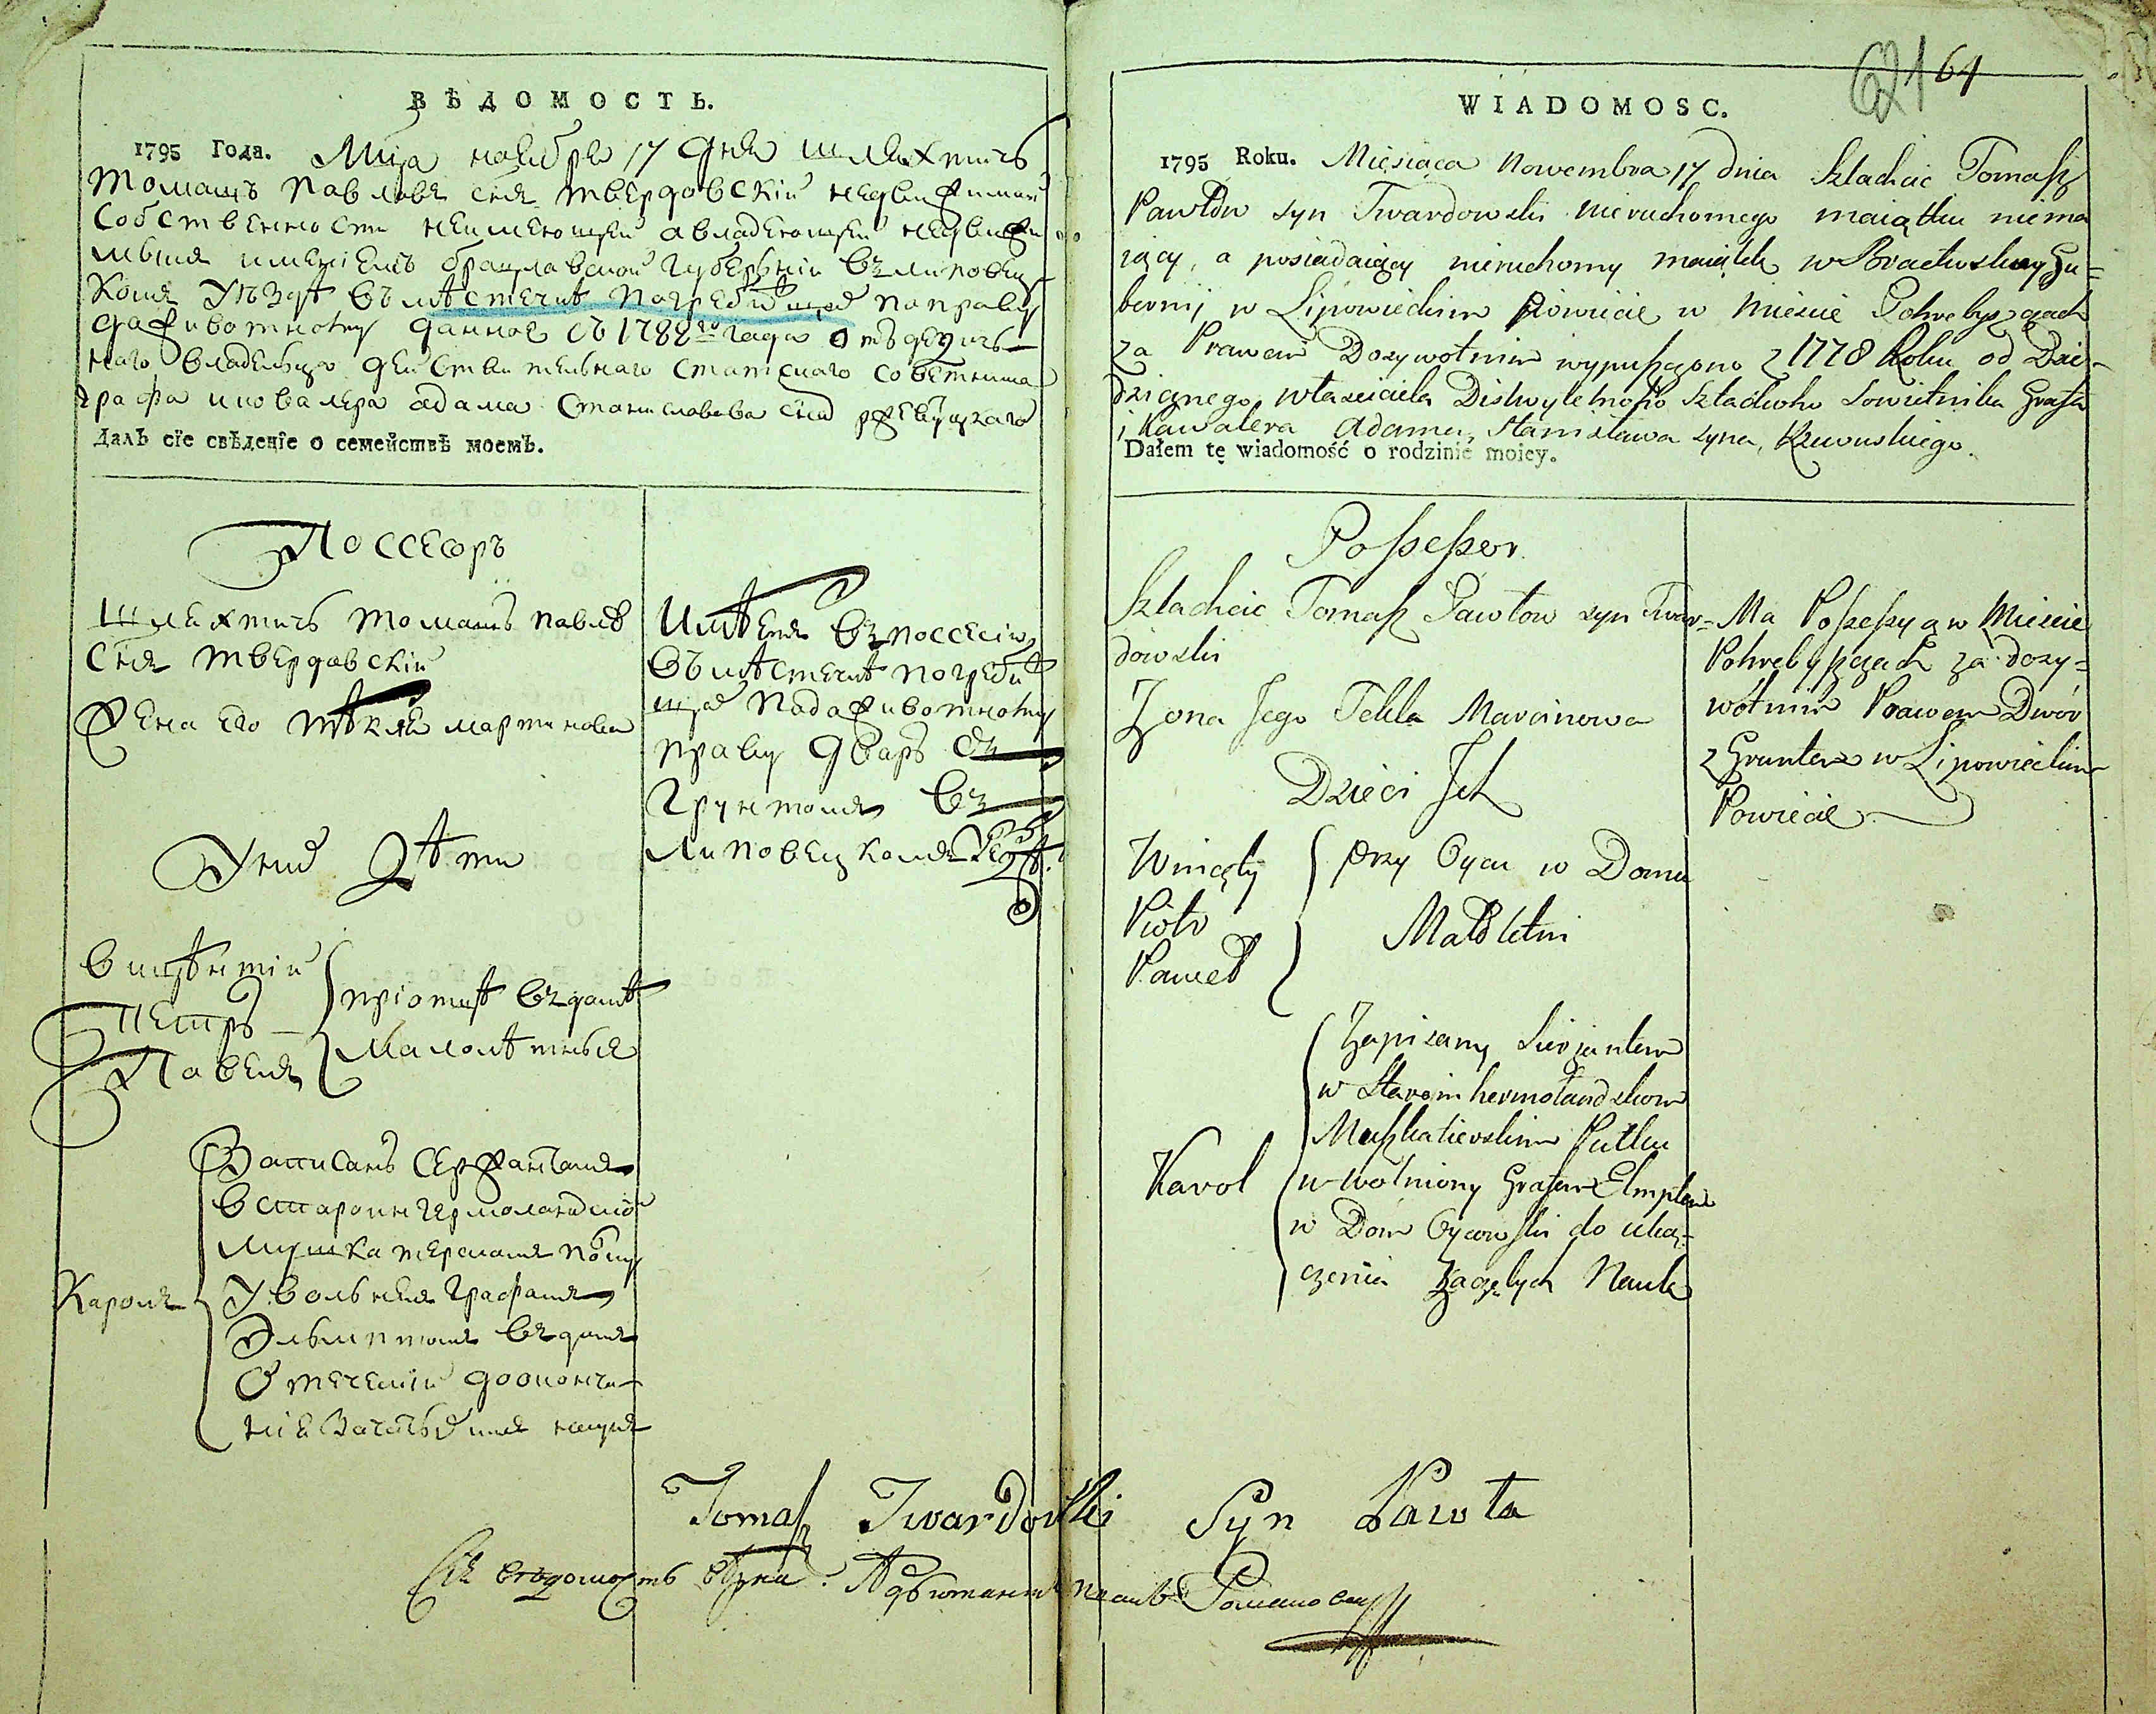 ВѢДОМОСТЬ.
1795 Года. Мца ноября 17 дня шляхтичъ
Томашъ Павловъ снъ Твердовскій недвижимой
собственности неимеющей а владеющей недвижи
мымъ имениемъ брацлавской губерніи въ липовец
комъ уѣзде въ мѣстечкѣ погребищахъ по праву
доживотному данное съ 1788го года отъ дедич
наго владельца действительнаго статскаго советника
графа и ковалера адама станиславова сна ржевускаго
Далъ сїе свѣденїе о семействѣ моемъ.
Поссесоръ
Шляхтичъ томашъ павловъ
снъ твердовскій
жена его тѣкля мартинова
У них дѣти
винцѣнтій
петръ
Павелъ
при отцѣ въ домѣ
малолѣтные
Кароль
Записанъ сержантомъ
въ староингермоландской
мушкатерской полкъ
уволненъ графомъ
Эльмптомъ въ домъ
отеческій до оконча
ния зачатыхъ имъ наукъ
Имѣетъ въ поссесии
въ мѣстечкѣ погреби
щахъ по дожывотному
праву дворъ съ
грунтомъ въ
Липовецкомъ Уездѣ.
WIADOMOSC.
62 1 64
1795 Roku. Miesiąca Nowembra 17 dnia Szlachcic Tomasz
Pawłów syn Twardowski nieruchomego maiątku niema
iący, a posiadaiący nieruchomy maiątek w Bracławskiey Gu=
bernij w Lipowieckim Powiecie w Miescie Pohrebyszczach
za Prawem Dozywotnim wypuszczono z 1778 Roku od Dzie-
dzicznego własciciela Distwytelnoho Sztackoho Sowietnika Grafa
i Kawalera Adama, Stanisława syna, Rzewuskiego.
Dałem tę wiadomość o rodzinie moiey.
Possessor.
Szlachcic Tomasz Pawłow syn Twar=
dowski
Zona Jego Tekla Marcinowa
Dzieci Ich
Wincęty
Piotr
Paweł
przy Oycu w Domu
Małoletni
Karol
Zapisany Sierżantem
w Staroinhermolandskom
Muszkatierskim Pułku
uwolniony Grafem Elmptem
w Dom Oycowski do ukoń=
czenia Zaczętych Nauk
Ma Possessyą w Miescie
Pohrebyszczach za dozy=
wotnim Prawem Dwór
z Gruntem w Lipowieckim
Powiecie
Tomasz Twardowski Syn Pawła
Сию ведомость верил. Адъютантъ